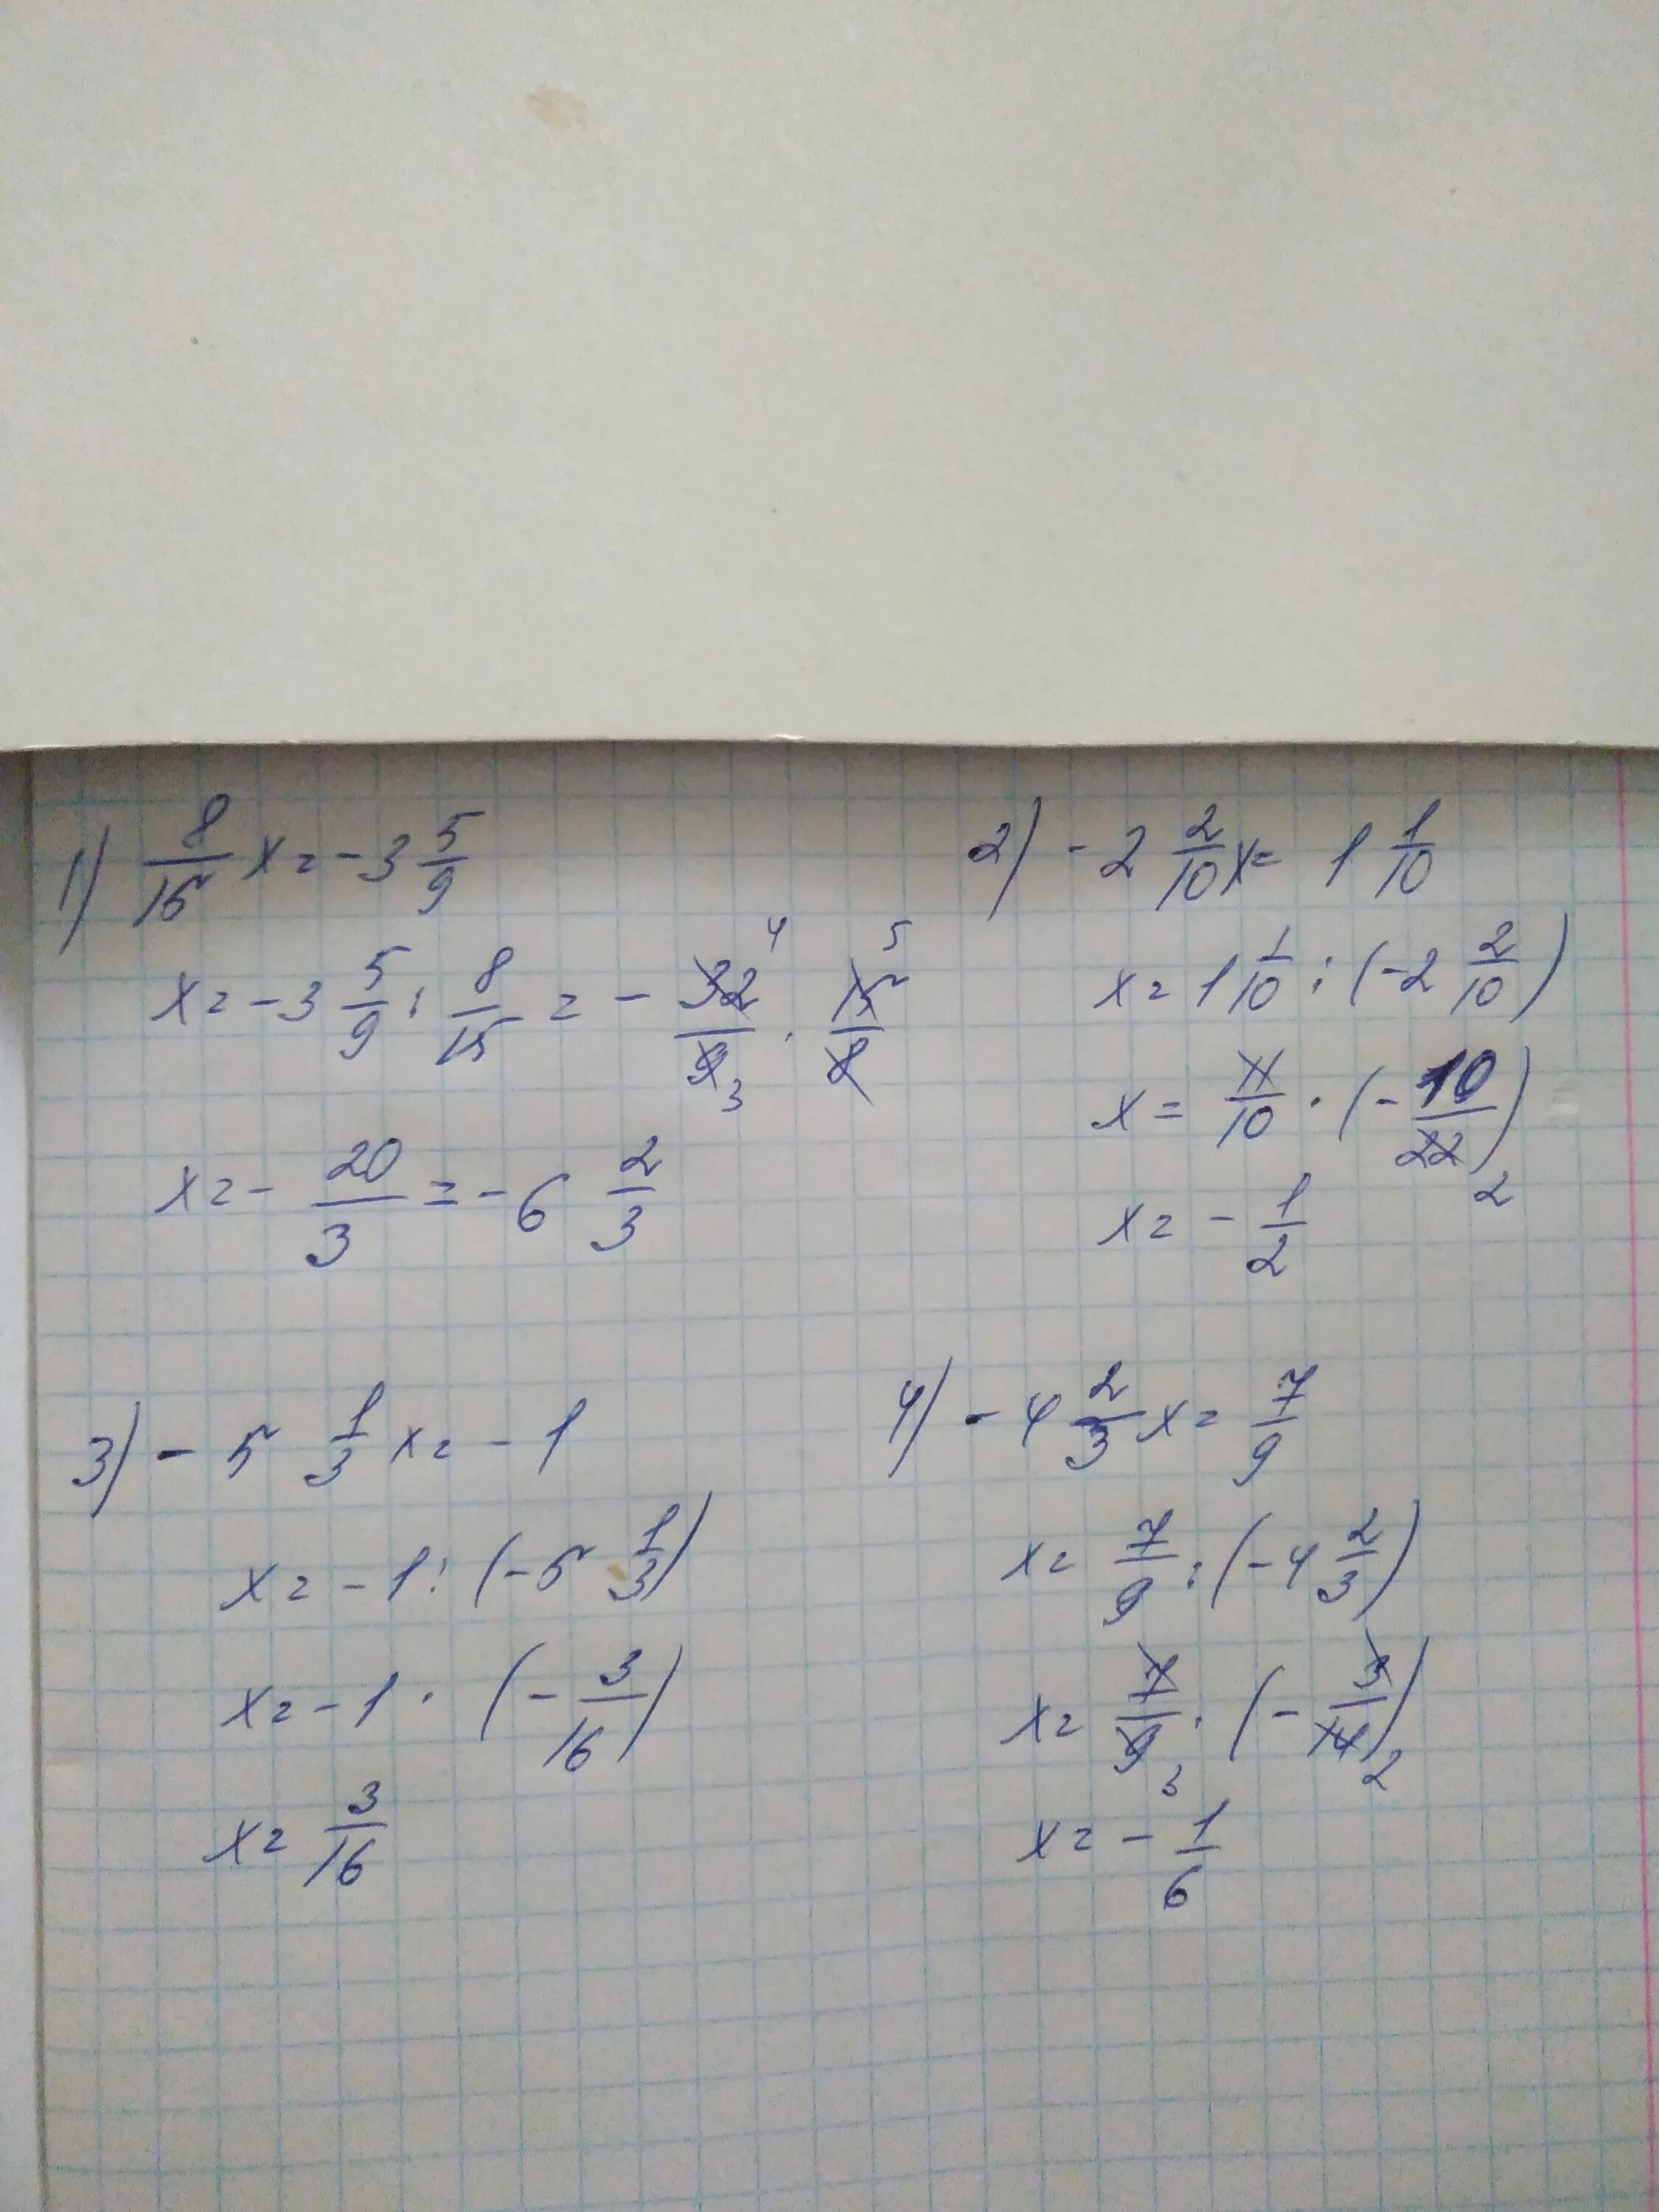 1) 8/15 x = -3 5/9
x = -3 5/9 : 8/15 = - 32/9 · 15/8
4 5
3
x = - 20/3 = -6 2/3
2) -2 2/10 x = 1 1/10
x = 1 1/10 : (-2 2/10)
x = 11/10 · (- 10/22)
2
x = - 1/2
3) - 5 1/3 x = - 1
x = - 1 : (-5 1/3)
x = - 1 · (- 3/16)
x = 3/16
4) - 4 2/3 x = 7/9
x = 7/9 : (-4 2/3)
x = 7/9 · (- 3/14)
3 2
x = - 1/6